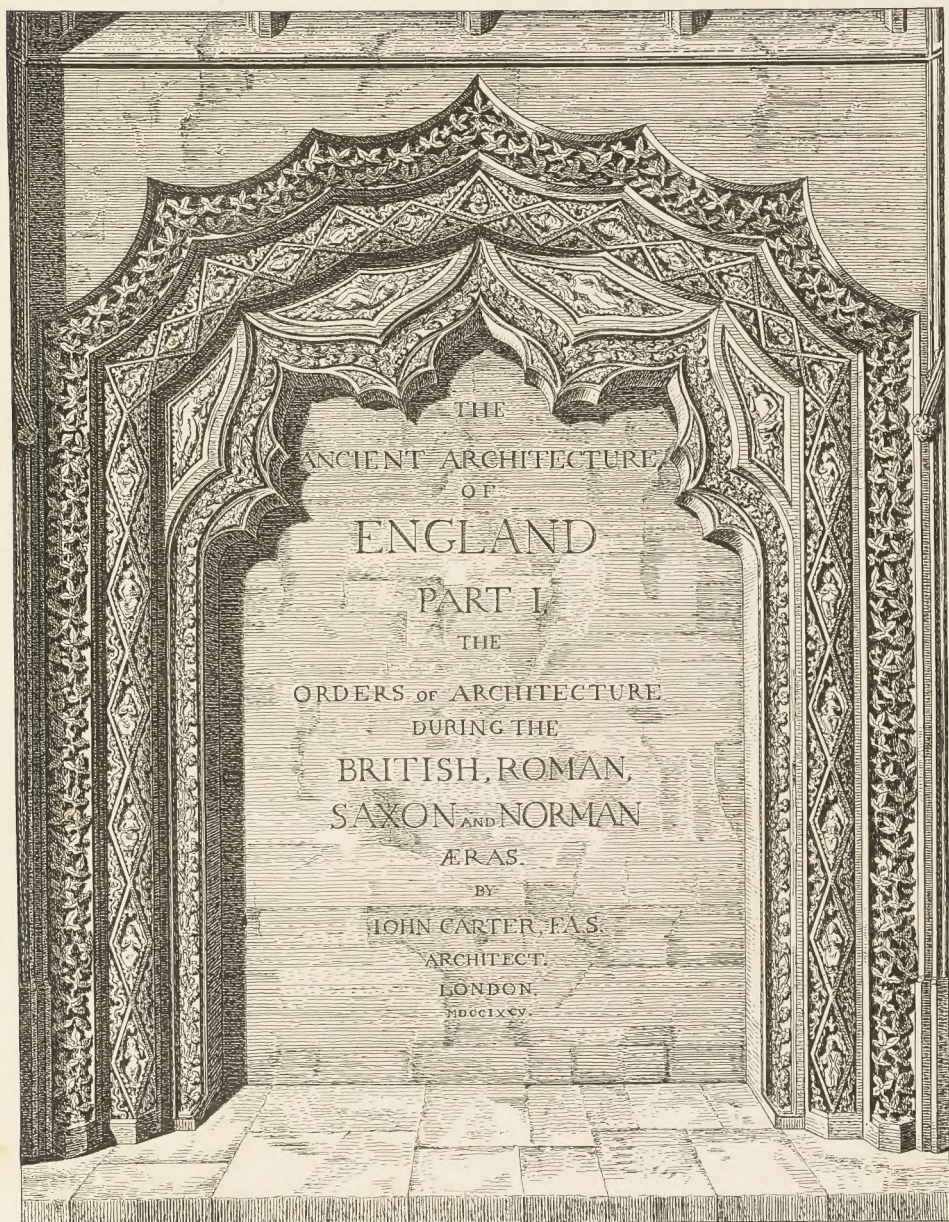 THE
ANCIENT ARCHITECTURE
OF
ENGLAND
PART I,
THE
ORDERS OF ARCHITECTURE
DURING THE
BRITISH, ROMAN,
SAXON AND NORMAN
ÆRAS.
BY
IOHN CARTER, F.A.S.
ARCHITECT.
LONDON,
MDCCIXCV.